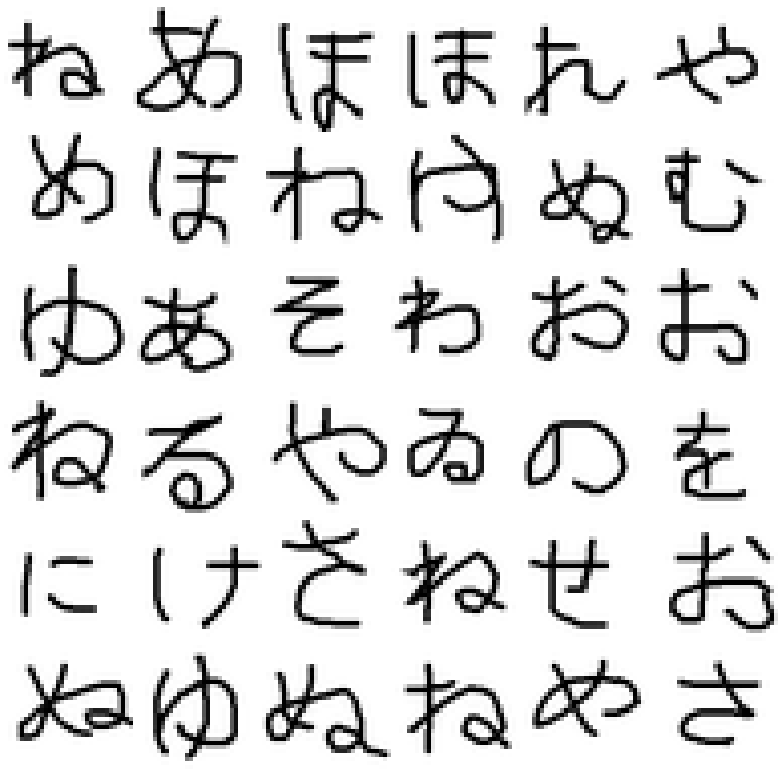 ねあほほれや
めほねゆぬむ
ゆあそわおお
ねるやゐのを
にけさねせお
ぬゆぬねやさ